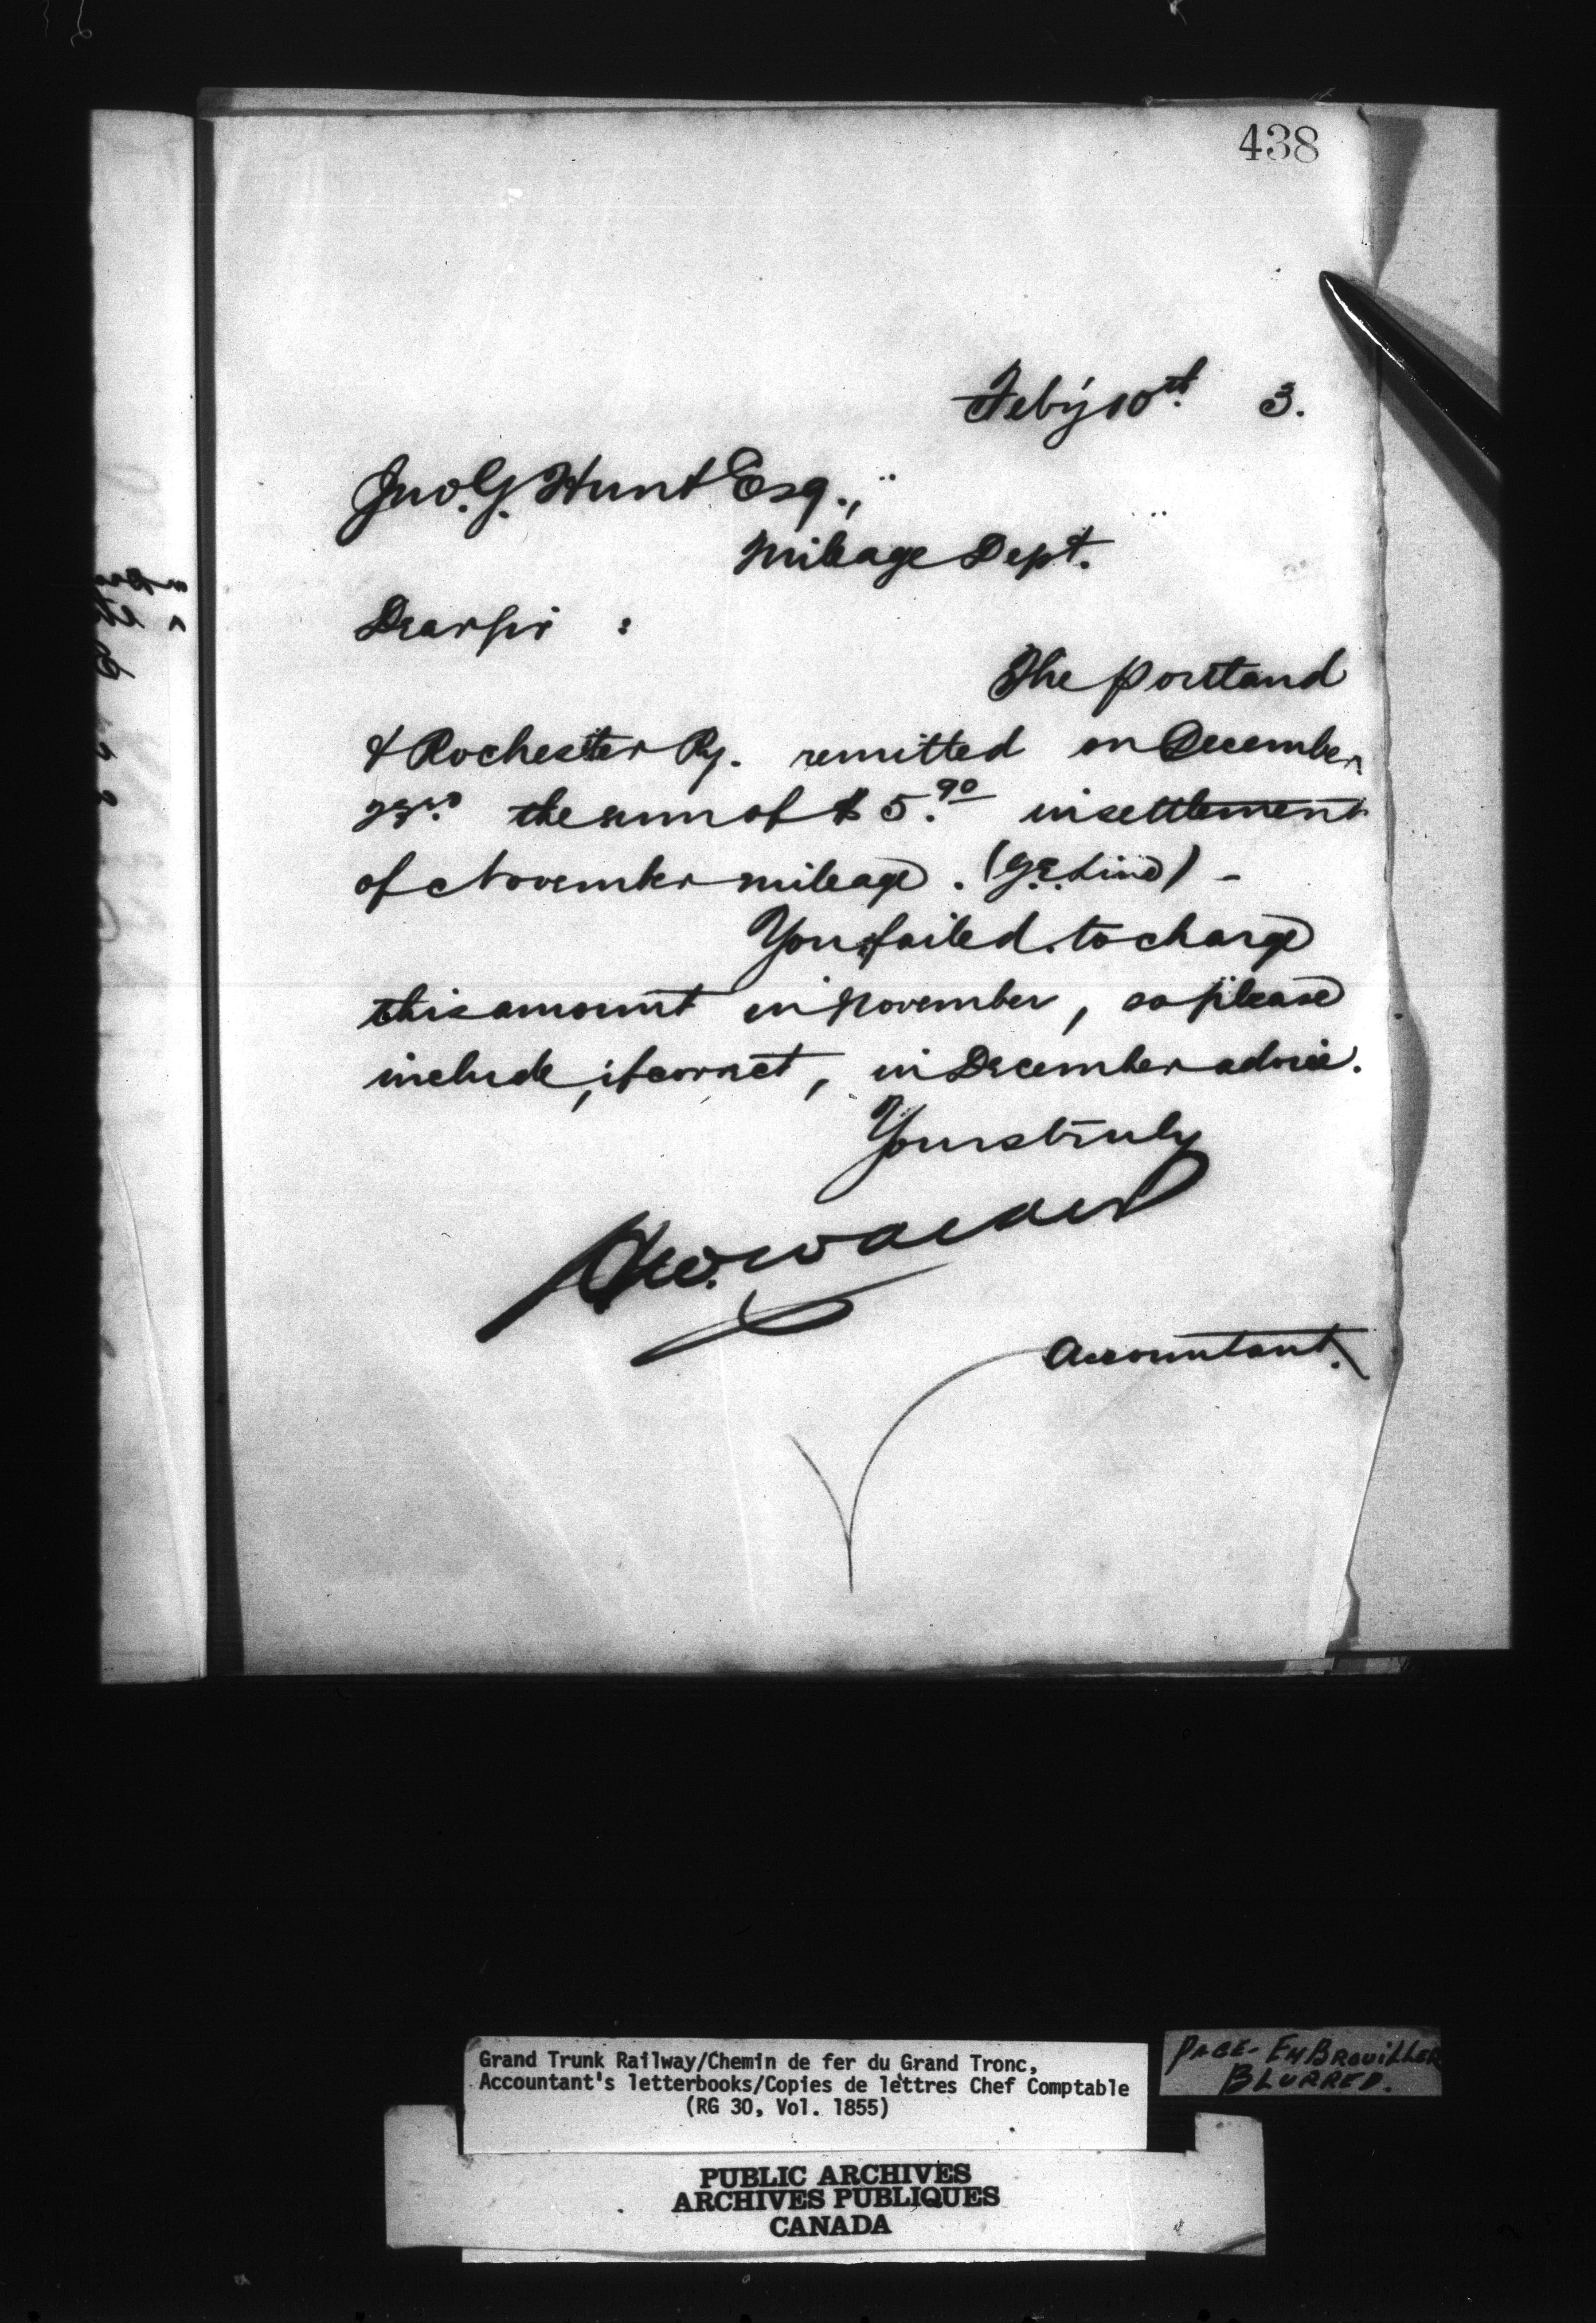 438
Feby 10th. 3.
Jno. G. Hunt Esq.,
Mileage Dept.
Dear Sir :
The Portland
& Rochester Ry. remitted on December
23rd the sum of $5.90 in settlement
of November mileage. (G.E. Line) -
You failed to charge
this amount in November, so please
include, if correct, in December advice.
Yours truly
Accountant.
Grand Trunk Railway/Chemin de fer du Grand Tronc,
Accountant's letterbooks/Copies de lettres Chef Comptable
(RG 30, Vol. 1855)
PAGE - EMBROUILLER
BLURRED.
PUBLIC ARCHIVES
ARCHIVES PUBLIQUES
CANADA